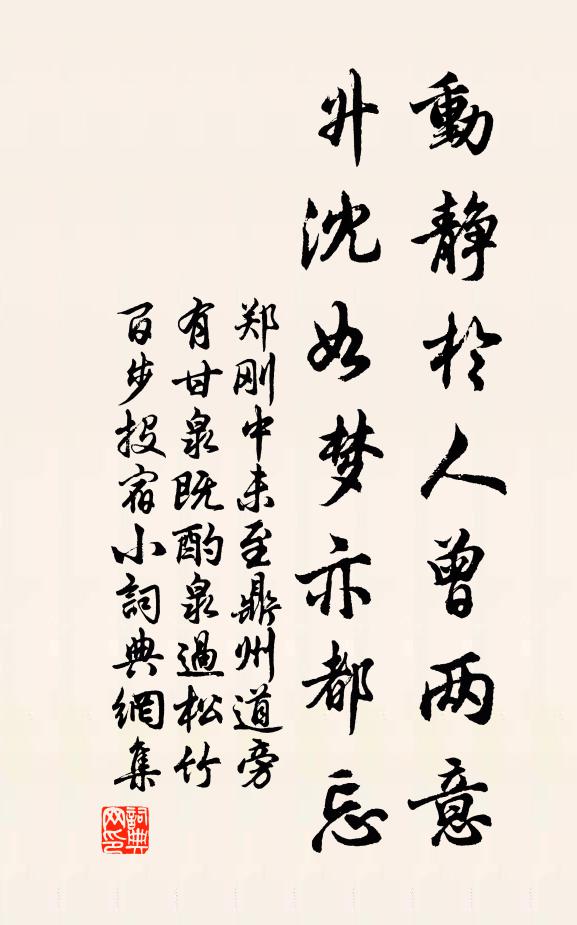 動静於人曾两意
升沈如梦亦都忘
郑刚中未至鼎州道旁
有甘泉既酌泉過松竹
百步投宿小詞典網集
詞典網印